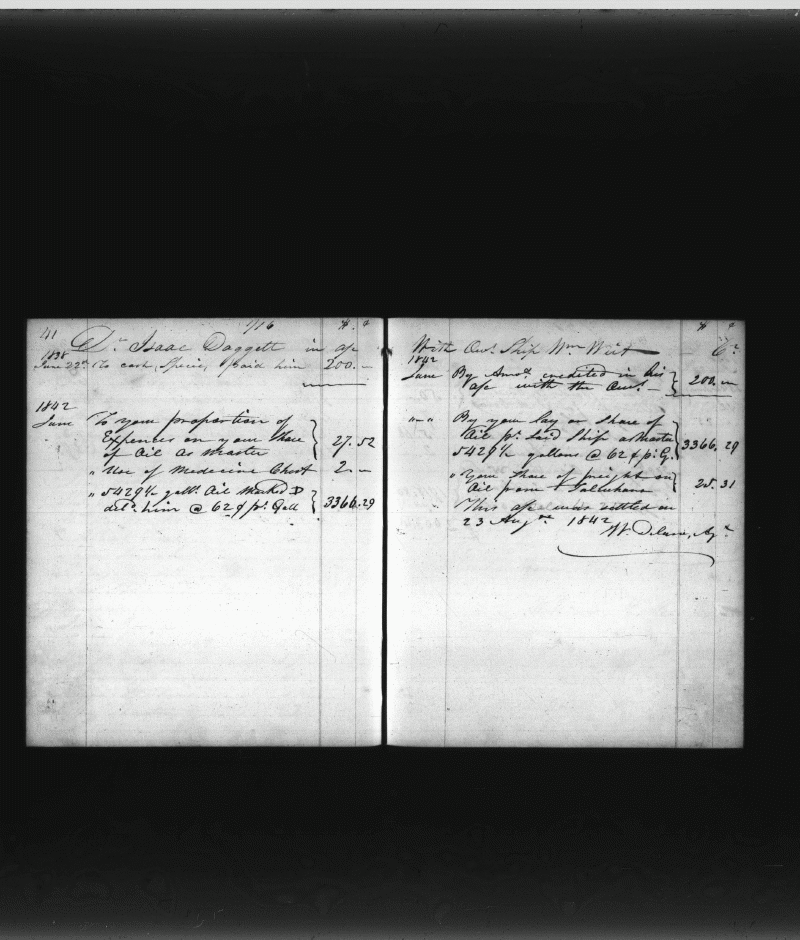 41 1/16 $ ¢
Dr Isaac Daggett in a/c
1838
June 22d To cash, Specie, paid him 200. –
1842
June To your proportion of
Expenses on your Share
of Oil as Master } 27. 52
" Use of Medecine Chest 2. –
" 5429¼ galls Oil Marked D
deld him @ 62 ¢ pr Gall } 3366. 29
$ ¢
With Ownr Ship Wm Wirt Cr
1842
June By Amot credited in his
a/c with the Ownr } 200. –
" – " By your lay or Share of
Oil pr Said Ship as Master
5429¼ gallons @ 62 ¢ pr G. } 3366. 29
" Your Share of freight on
Oil from 25. 31
This a/c was settled on
23 Augst 1842
Agt